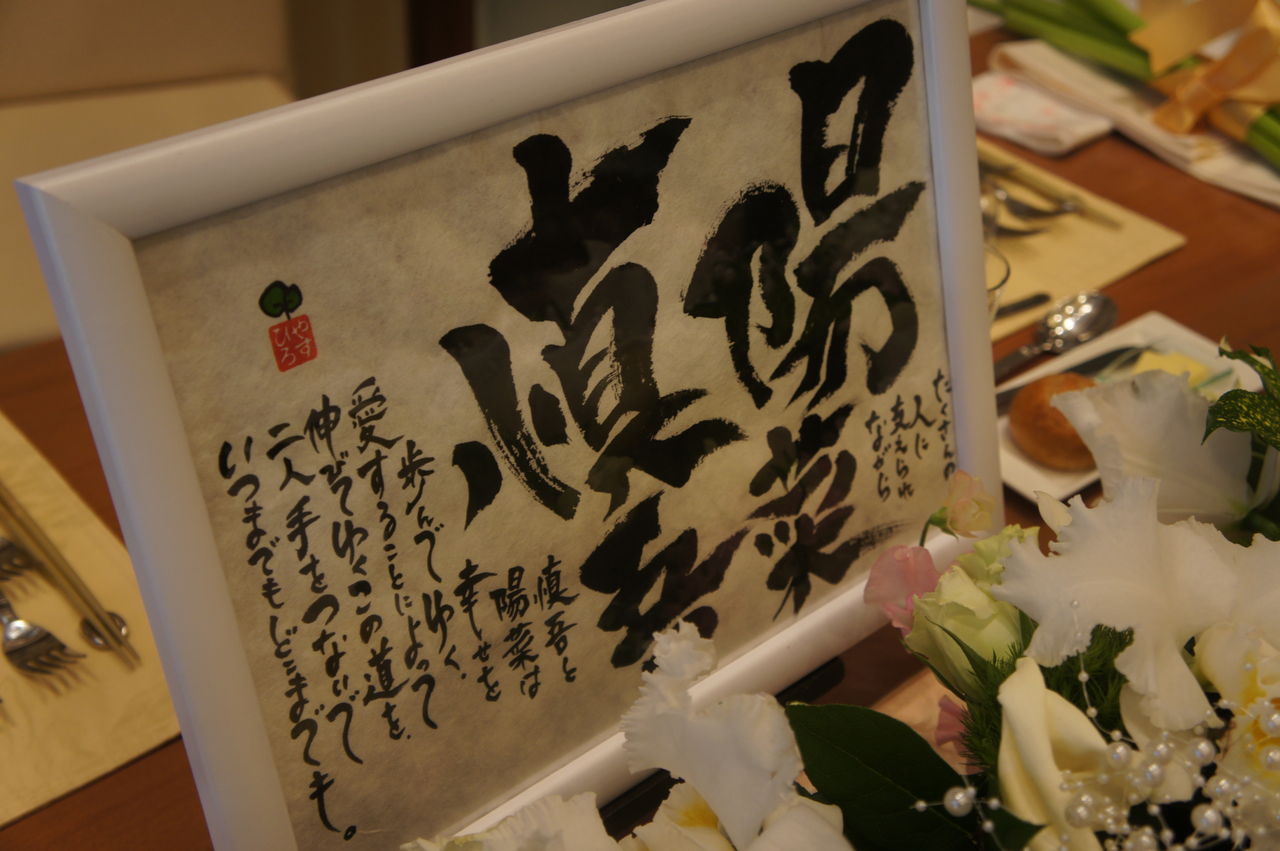 陽菜
慎吾
たくさんの
人に
支えられ
ながら
慎吾と
陽菜は
幸せを
歩んでゆく、
愛することによって
伸びてゆくこの道を、
二人手をつないで
いつまでもどこまでも。
やす
ひろ